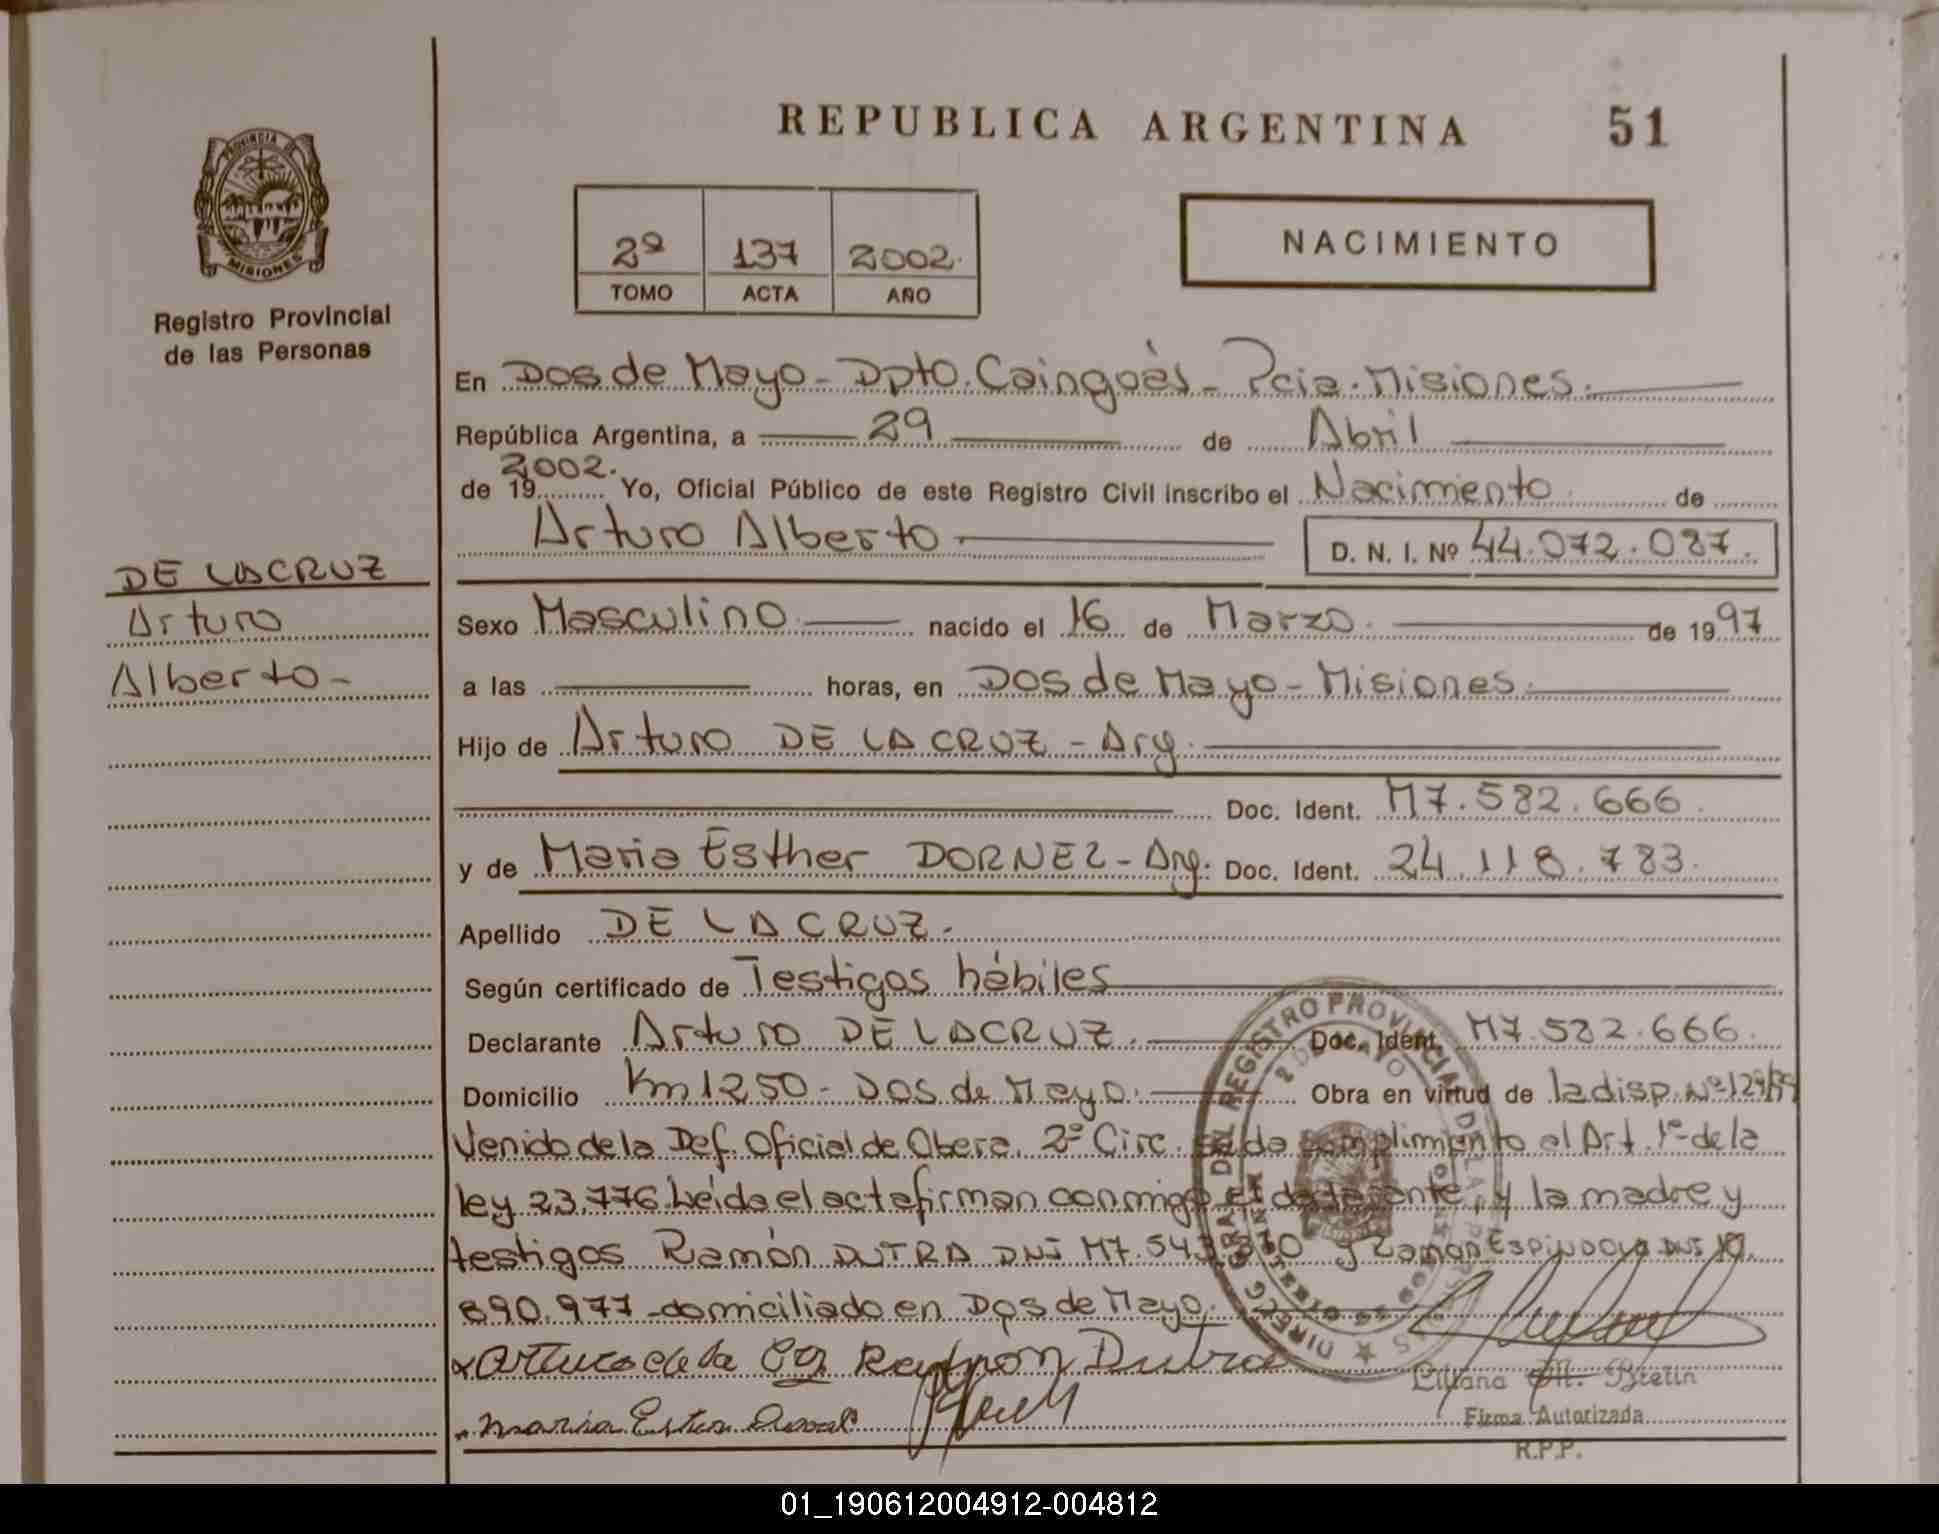 REPUBLICA ARGENTINA 51
PROVINCIA DE
MISIONES
Registro Provincial
de las Personas
2º 137 2002.
TOMO ACTA AÑO
NACIMIENTO
En Dos de Mayo - Dpto. Caingoàs - Pcia. Misiones.
República Argentina, a 29 de Abril
de 19 2002. Yo, Oficial Público de este Registro Civil inscribo el Nacimiento de
Arturo Alberto D. N. I. Nº 44.072.087.
DE LA CRUZ
Arturo
Alberto -
Sexo Masculino nacido el 16 de Marzo de 1997
a las horas, en Dos de Mayo - Misiones.
Hijo de Arturo DE LA CRUZ - Arg.
Doc. Ident. M7.582.666.
y de Maria Esther DORNEZ - Arg. Doc. Ident. 24.118.783.
Apellido DE LA CRUZ.
Según certificado de Testigos hábiles
Declarante Arturo DE LA CRUZ. Doc. Ident. M7.582.666.
Domicilio Km 1250 - Dos de Mayo. Obra en virtud de la disp. Nº
Venido de la Def. Oficial de Obera. 2º Circ. cumplimiento al Art. 1º de la
ley 23.776. Leída el acta firman conmigo el declarante, y la madre y
testigos Ramón DUTRA DNI M7.54 y Ramon ESPINDOLA DNI
890.977 - domiciliado en Dos de Mayo.
Arturo de la Ramon Dutra
Maria Ester
Liliana M.
Firma Autorizada
R.P.P.
01_190612004912-004812